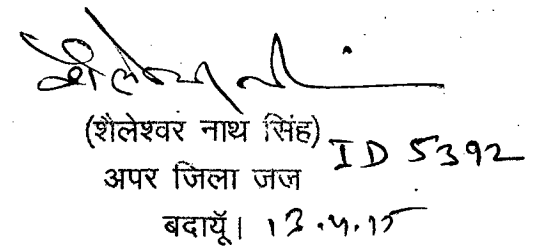 (शैलेश्वर नाथ सिंह) ID 5392
अपर जिला जज
बदायूँ। 13.4.15